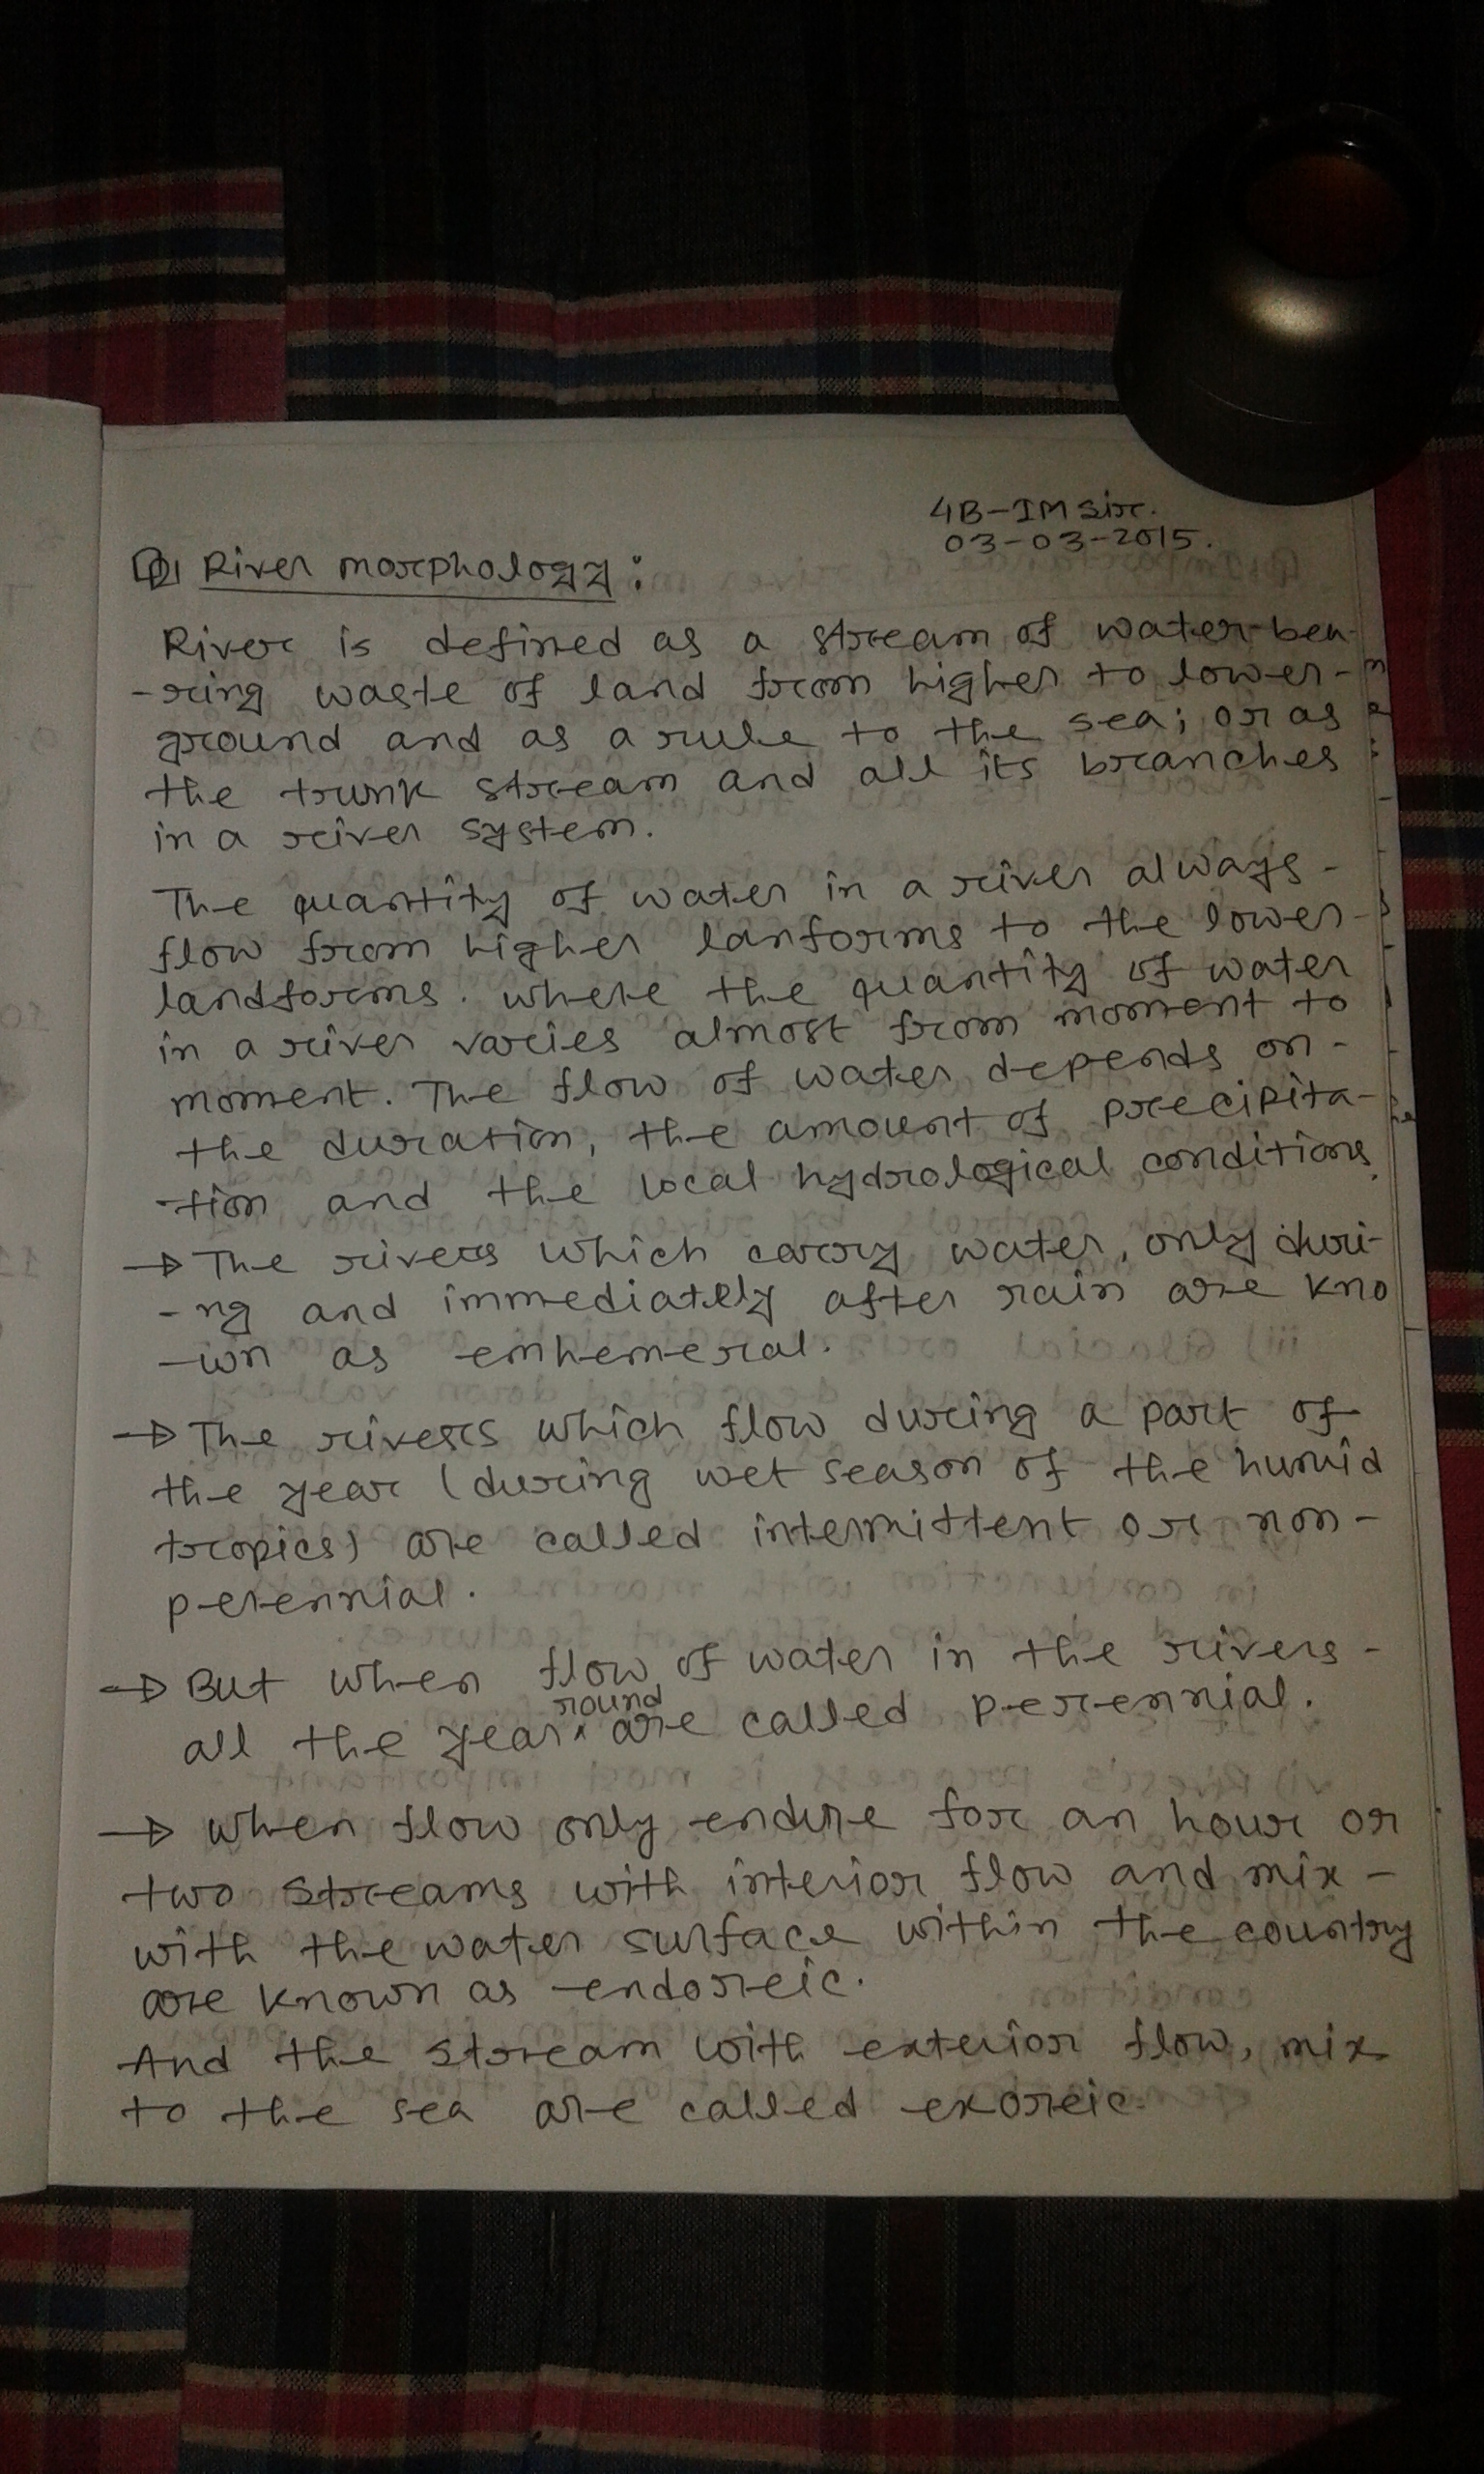 4B-IM sir.
03-03-2015.
River morphology:
River is defined as a stream of water-bea-
-ring waste of land from higher to lower-
ground and as a rule to the sea; or as
the trunk stream and all its branches
in a river system.
The quantity of water in a river always-
flow from higher lanforms to the lower-
landforms. where the quantity of water
in a river varies almost from moment to
moment. The flow of water depends on-
the duration, the amount of precipita-
-tion and the local hydrological conditions.
→ The rivers which carry water, only duri-
-ng and immediately after rain are kno
-wn as emhemeral.
→ The rivers which flow during a part of
the year (during wet season of the humid
tropics) are called intermittent or non-
perennial.
→ But when flow of water in the rivers-
all the year round are called perennial.
→ when flow only endure for an hour or
two streams with interior flow and mix-
with the water surface within the country
are known as endoreic.
And the stream with exterior flow, mix
to the sea are called exoreic.